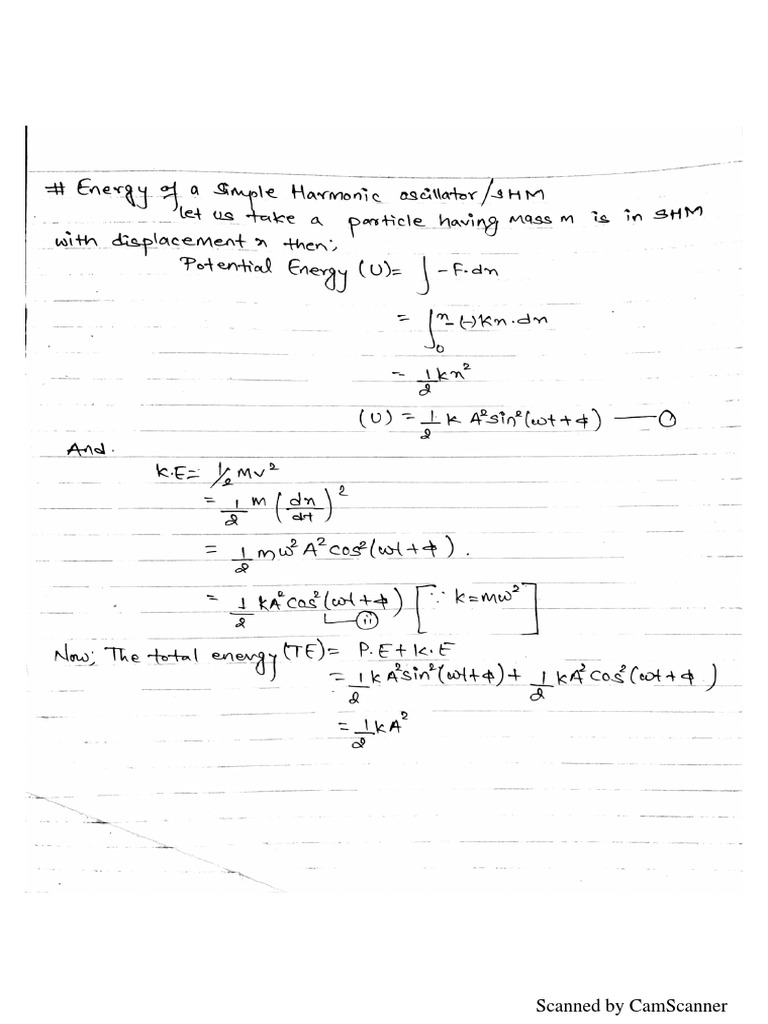 # Energy of a Simple Harmonic oscillator/SHM
let us take a particle having mass m is in SHM
with displacement x then;
Potential Energy (U)= ∫ -F.dx
= ∫₀ˣ - (-)Kx.dx
= 1/2 kx²
(U) = 1/2 k A²sin²(ωt+ϕ) —— ①
And.
K.E= 1/2 mv²
= 1/2 m (dx/dt)²
= 1/2 mω² A² cos²(ωt+ϕ).
= 1/2 KA²cos²(ωt+ϕ) [∵ k=mω²]
ⅱ
Now; The total energy (TE)= P.E+K.E
= 1/2 kA²sin²(ωt+ϕ) + 1/2 kA²cos²(ωt+ϕ)
= 1/2 kA²
Scanned by CamScanner